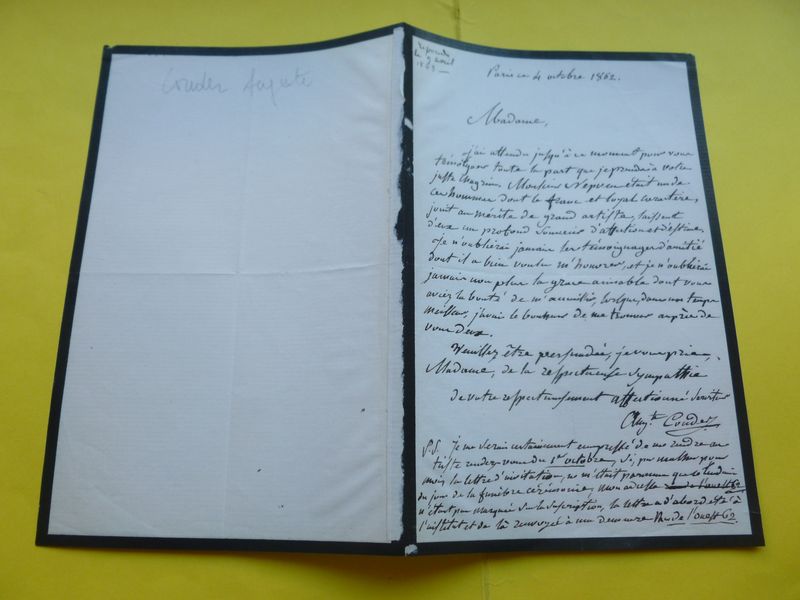 Couder Auguste
repondu
le 9 avril
1863 —
Paris ce 4 octobre 1862.
Madame,
j'ai attendu jusqu'à ce moment pour vous
témoigner toute la part que je prends à votre
juste chagrin. Monsieur Nepveu était un de
ces hommes dont le franc et loyal caractère,
joint au mérite de grand artiste, laissent
d'eux un profond souvenir d'affection et d'estime.
Je n'oublierai jamais les témoignages d'amitié
dont il a bien voulu m'honorer, et je n'oublierai
jamais non plus la grace aimable dont vous
aviez la bonté de m'accueillir, lorsque, dans un temps
meilleur, j'avais le bonheur de me trouver auprès de
vous deux.
Veuillez être persuadée, je vous prie,
Madame, de la respectueuse sympathie
de votre respectueusement affectionné serviteur
Aug.te Couder
P.S. Je me serais certainement empressé de me rendre au
triste rendez-vous du 1er octobre, si, par malheur pour
moi, la lettre d'invitation, ne m'était parvenue que le lendemain
du jour de la funèbre cérémonie, mon adresse
n'étant pas marquée sur la suscription, la lettre a d'abord été à
l'institut et de là renvoyé à ma demeure Rue de l'ouest 62.